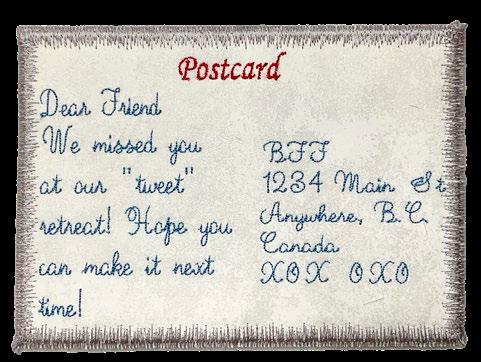 Postcard
Dear Friend
We missed you
at our "tweet"
retreat! Hope you
can make it next
time!
BFF
1234 Main St
Anywhere, B.C.
Canada
XOX OXO